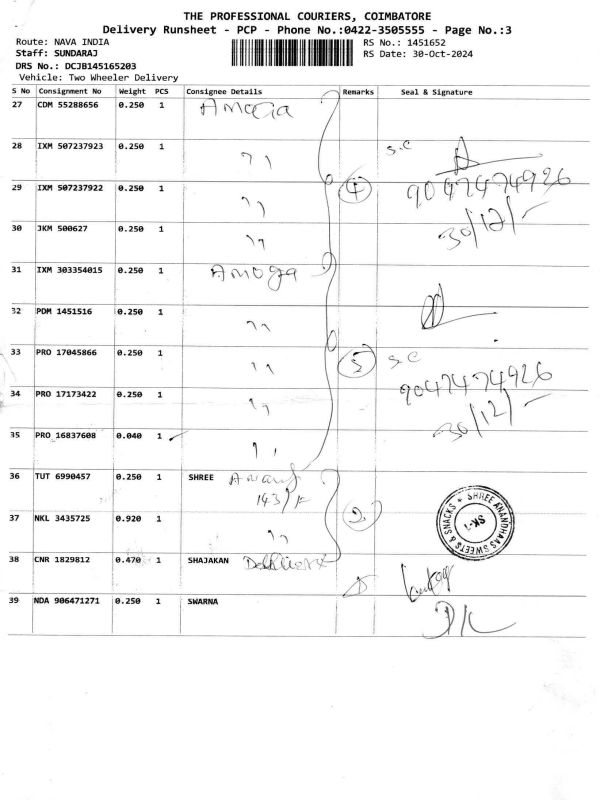 THE PROFESSIONAL COURIERS, COIMBATORE
Delivery Runsheet - PCP - Phone No.:0422-3505555 - Page No.:3
Route: NAVA INDIA
RS No.: 1451652
Staff: SUNDARAJ
RS Date: 30-Oct-2024
DRS No.: DCJB145165203
Vehicle: Two Wheeler Delivery
S No Consignment No Weight PCS Consignee Details Remarks Seal & Signature
27 CDM 55288656 0.250 1
28 IXM 507237923 0.250 1 " S.C
29 IXM 507237922 0.250 1 " 4 9047474926
30 JKM 500627 0.250 1 " 30/12/-
31 IXM 303354015 0.250 1 Amoga
32 PDM 1451516 0.250 1 "
33 PRO 17045866 0.250 1 " 5 S.C
34 PRO 17173422 0.250 1 " 9047474926
35 PRO 16837608 0.040 1 " 30/12/-
36 TUT 6990457 0.250 1 SHREE
37 NKL 3435725 0.920 1 " 2
SHREE ANANDHAAS SWEETS & SNACKS
SK-1
38 CNR 1829812 0.470 1 SHAJAKAN
39 NDA 906471271 0.250 1 SWARNA